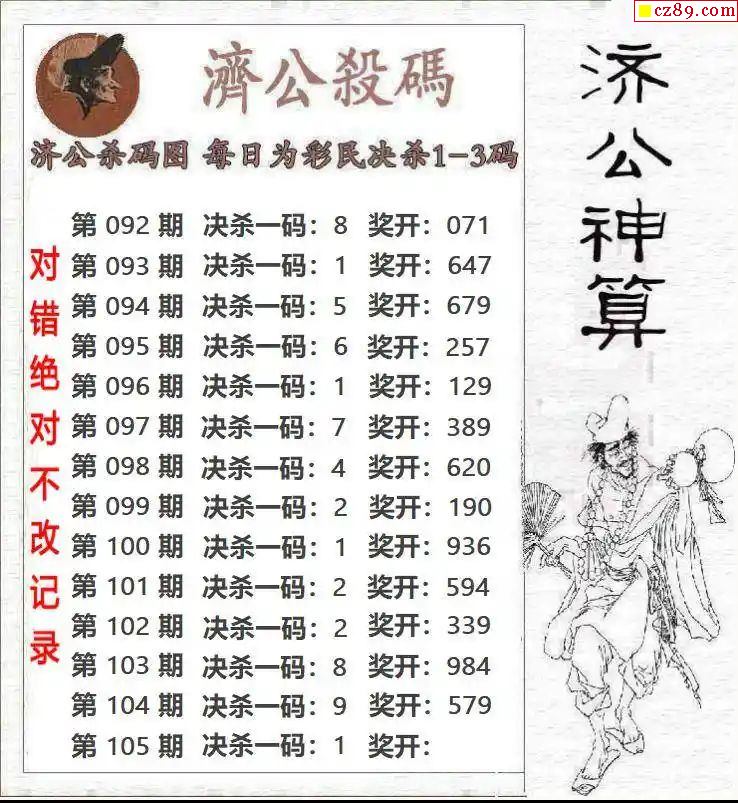 cz89.com
濟公殺碼
济公杀码图 每日为彩民决杀1-3码
第 092 期 决杀一码：8 奖开：071
第 093 期 决杀一码：1 奖开：647
第 094 期 决杀一码：5 奖开：679
第 095 期 决杀一码：6 奖开：257
第 096 期 决杀一码：1 奖开：129
第 097 期 决杀一码：7 奖开：389
第 098 期 决杀一码：4 奖开：620
第 099 期 决杀一码：2 奖开：190
第 100 期 决杀一码：1 奖开：936
第 101 期 决杀一码：2 奖开：594
第 102 期 决杀一码：2 奖开：339
第 103 期 决杀一码：8 奖开：984
第 104 期 决杀一码：9 奖开：579
第 105 期 决杀一码：1 奖开：
对错绝对不改记录
济公神算